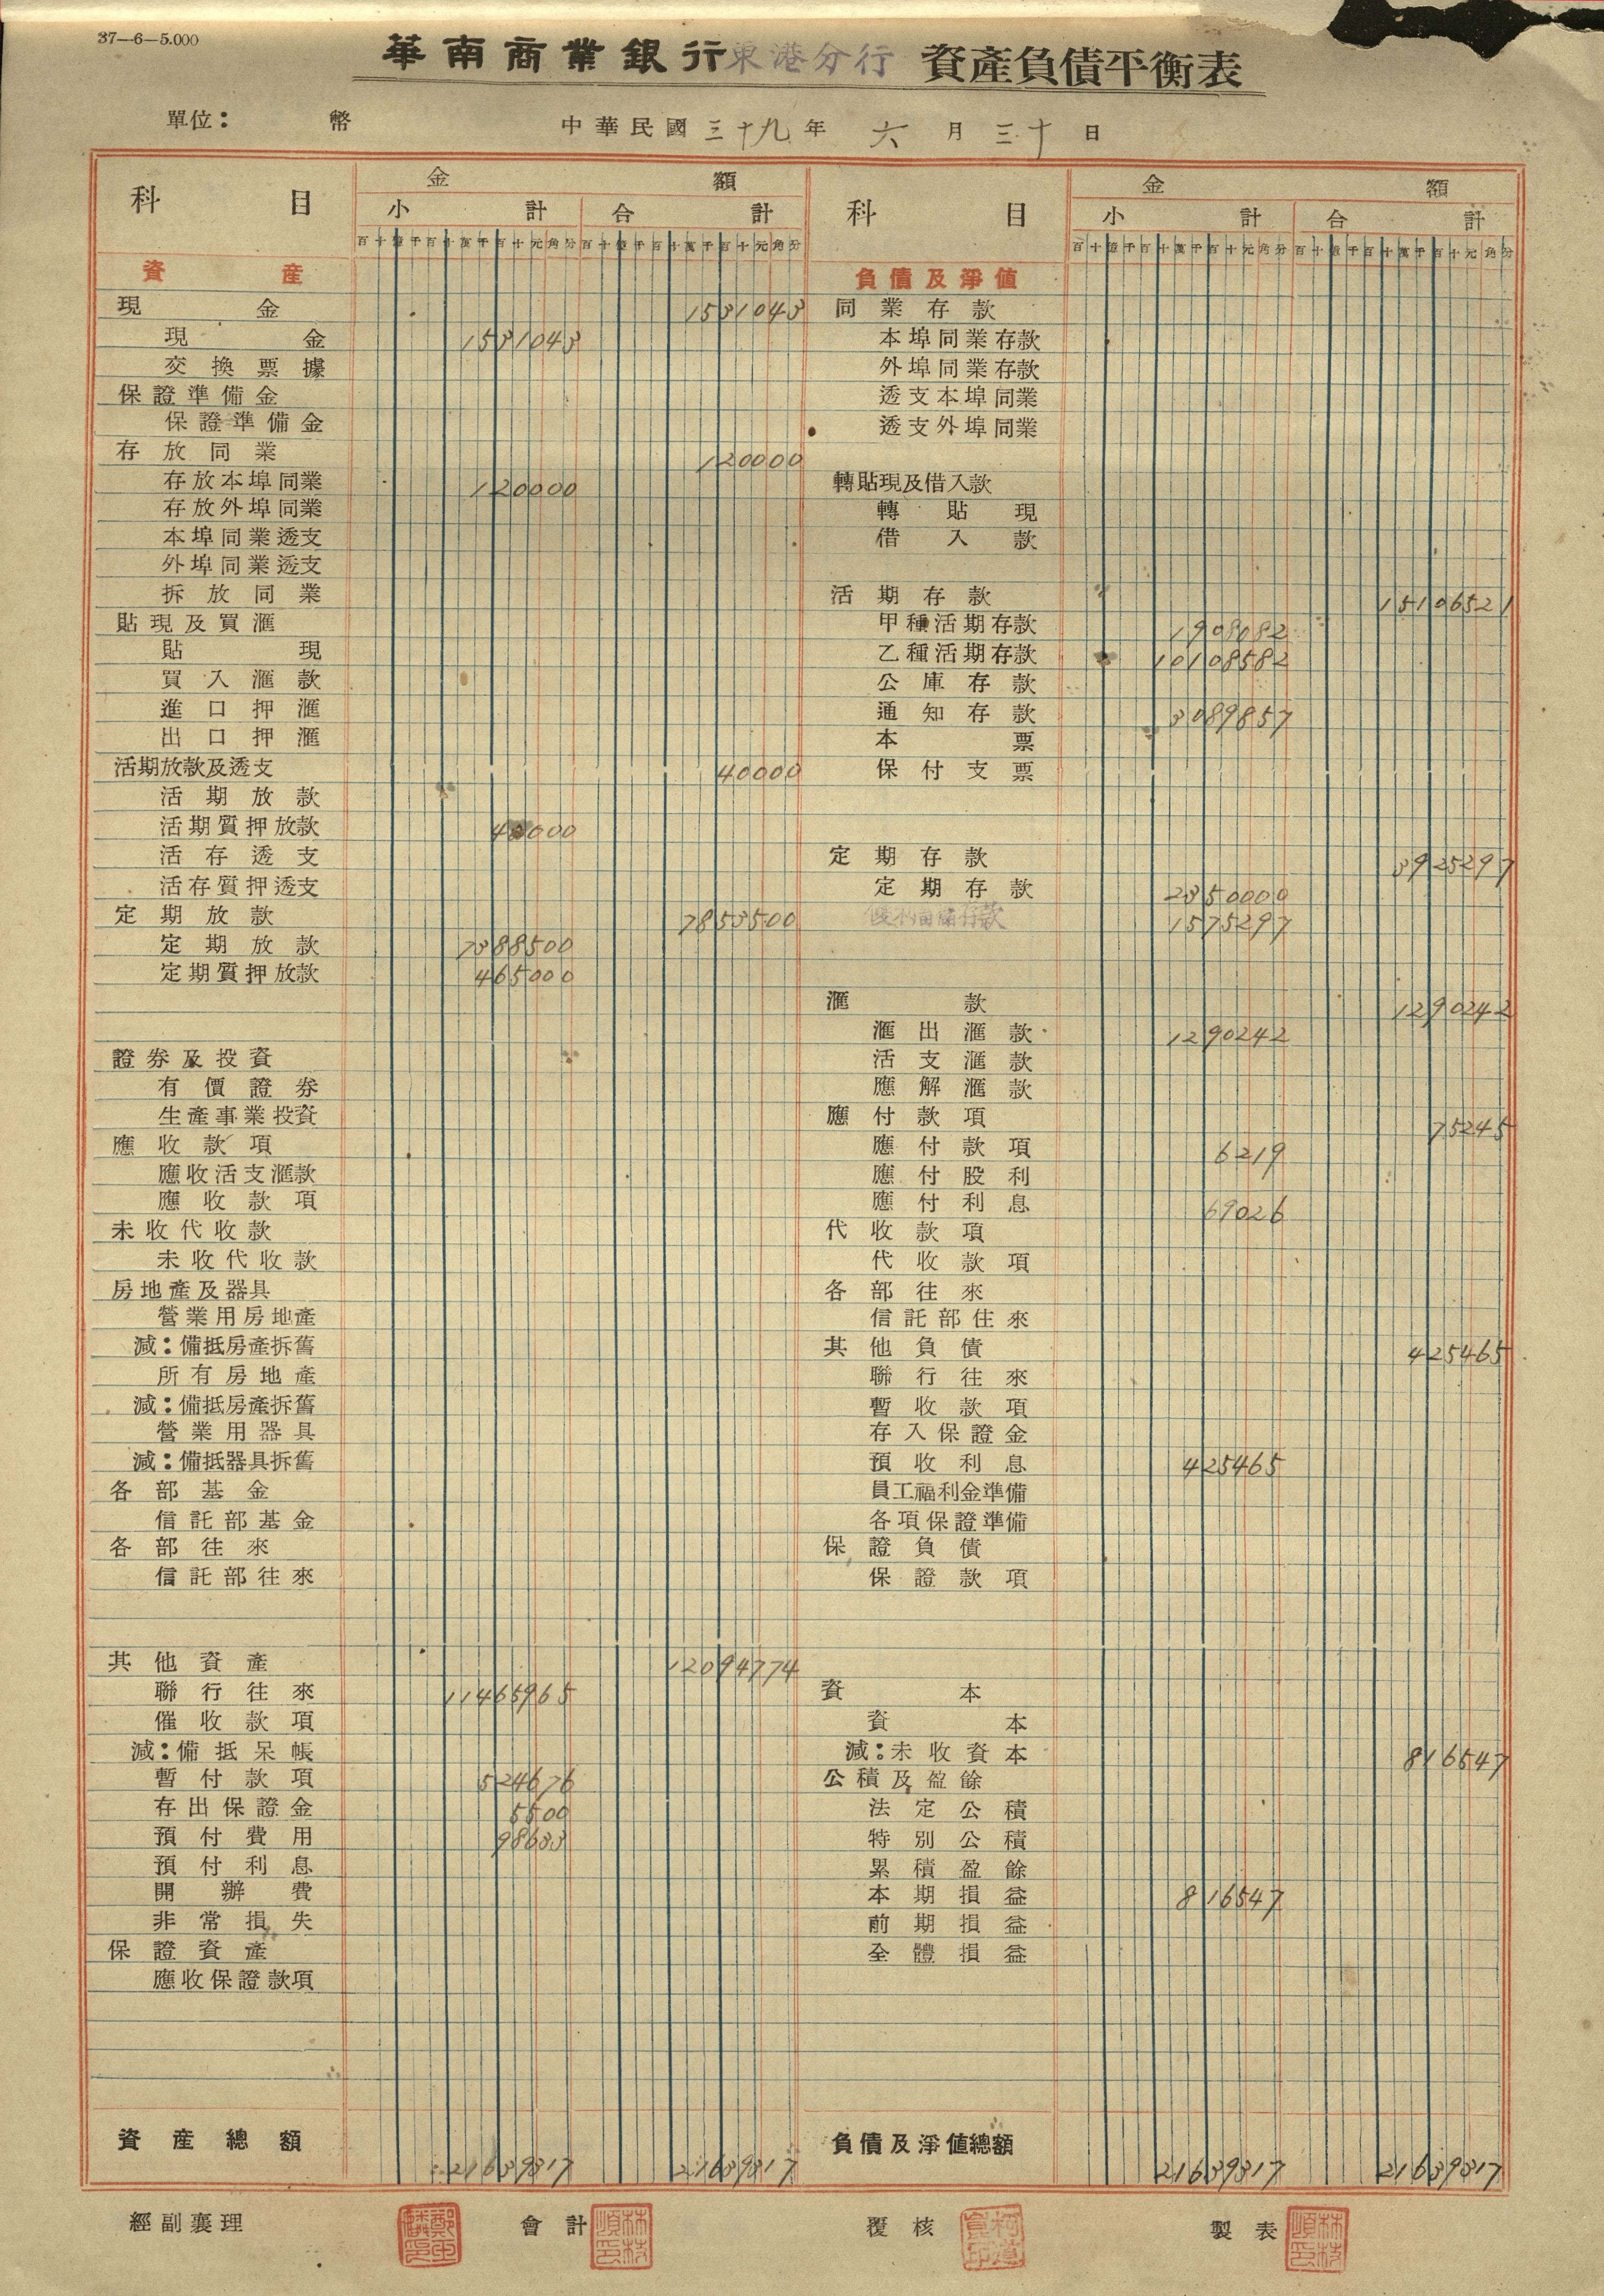 37—6—5.000
華南商業銀行東港分行 資產負債平衡表
單位： 幣
中華民國三十九年六月三十日
科目 金額
小計 合計
百十億千百十萬千百十元角分 百十億千百十萬千百十元角分
資產
現金 1531043
現金 1531043
交換票據
保證準備金
保證準備金
存放同業 120000
存放本埠同業 120000
存放外埠同業
本埠同業透支
外埠同業透支
拆放同業
貼現及買滙
貼現
買入滙款
進口押滙
出口押滙
活期放款及透支 40000
活期放款
活期質押放款 40000
活存透支
活存質押透支
定期放款 7853500
定期放款 7388500
定期質押放款 465000
證券及投資
有價證券
生產事業投資
應收款項
應收活支滙款
應收款項
未收代收款
未收代收款
房地產及器具
營業用房地產
減：備抵房產拆舊
所有房地產
減：備抵房產拆舊
營業用器具
減：備抵器具拆舊
各部基金
信託部基金
各部往來
信託部往來
其他資產 12094774
聯行往來 11465965
催收款項
減：備抵呆帳
暫付款項 524676
存出保證金 5500
預付費用 98633
預付利息
開辦費
非常損失
保證資產
應收保證款項
資產總額 21639317 21639317
科目 金額
小計 合計
百十億千百十萬千百十元角分 百十億千百十萬千百十元角分
負債及淨值
同業存款
本埠同業存款
外埠同業存款
透支本埠同業
透支外埠同業
轉貼現及借入款
轉貼現
借入款
活期存款 15106521
甲種活期存款 1908082
乙種活期存款 10108582
公庫存款
通知存款 3089857
本票
保付支票
定期存款 3925297
定期存款 2350000
存款 1575297
滙款 1290242
滙出滙款 1290242
活支滙款
應解滙款
應付款項 75245
應付款項 6219
應付股利
應付利息 69026
代收款項
代收款項
各部往來
信託部往來
其他負債 425465
聯行往來
暫收款項
存入保證金
預收利息 425465
員工福利金準備
各項保證準備
保證負債
保證款項
資本
資本
減：未收資本
公積及盈餘 816547
法定公積
特別公積
累積盈餘
本期損益 816547
前期損益
全體損益
負債及淨值總額 21639317 21639317
經副襄理 會計 林枝順印 覆核 製表 林枝順印